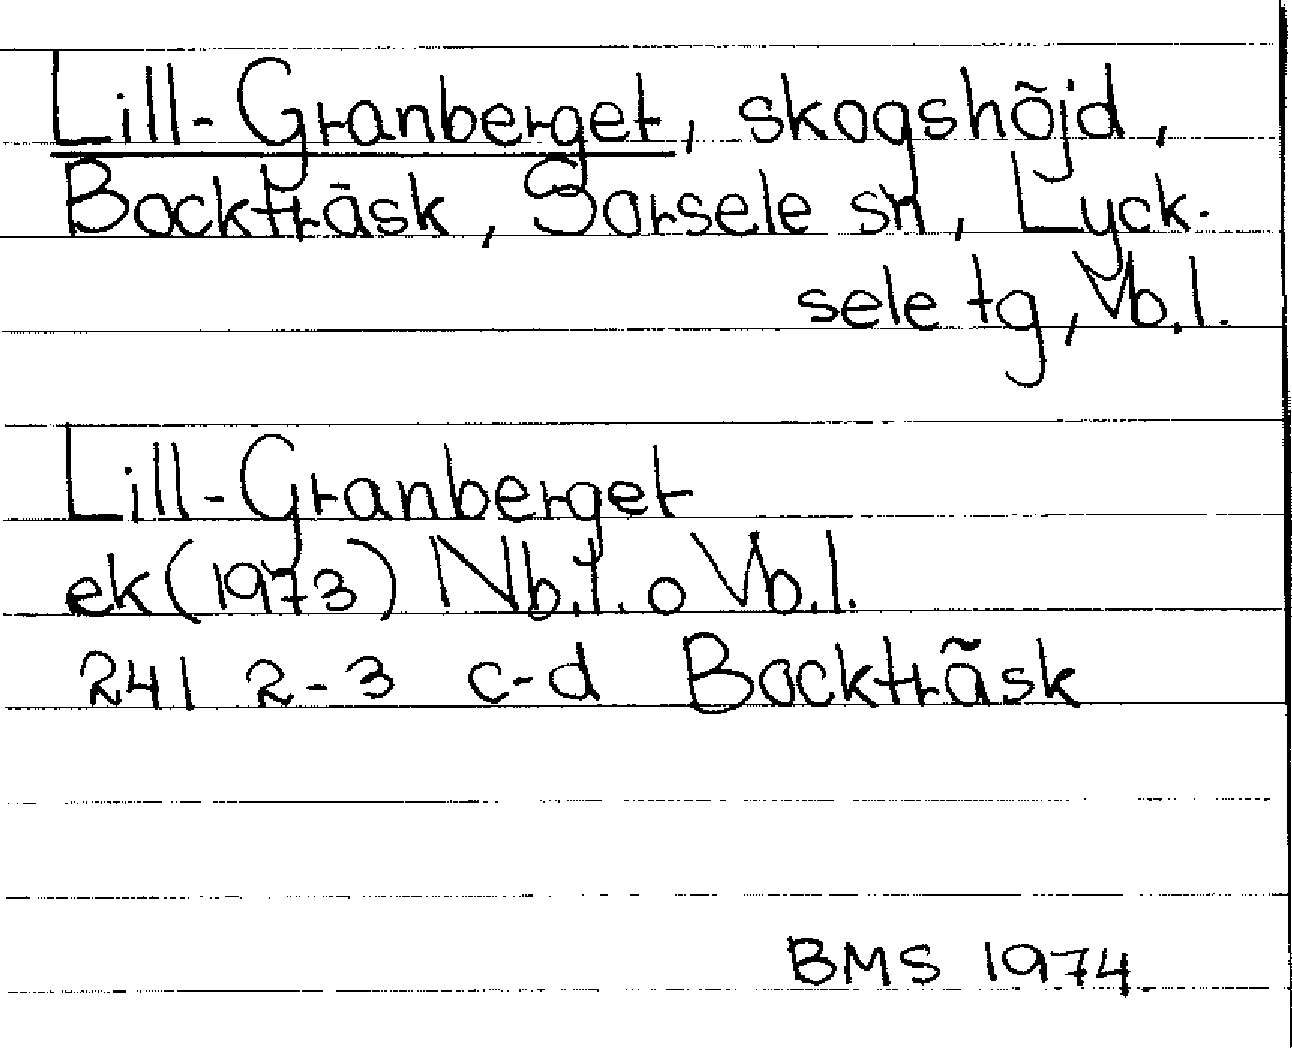 Lill-Granberget, skogshöjd,
Bockträsk, Sorsele sn, Lyck-
sele tg, Vb.l.
Lill-Granberget
ek (1973) Nb.l. o Vb.l.
241 2-3 c-d Bockträsk
BMS 1974.